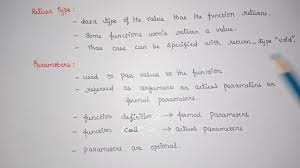 Return type:
- data type of the value that the function returns.
- Some functions won't return a value.
- That case can be specified with return_type "void".
Parameters:
- used to pass values to the function.
- referred as argument or actual parameters or
formal parameters.
- function definition → formal parameters.
- function call → actual parameters
- parameters are optional.